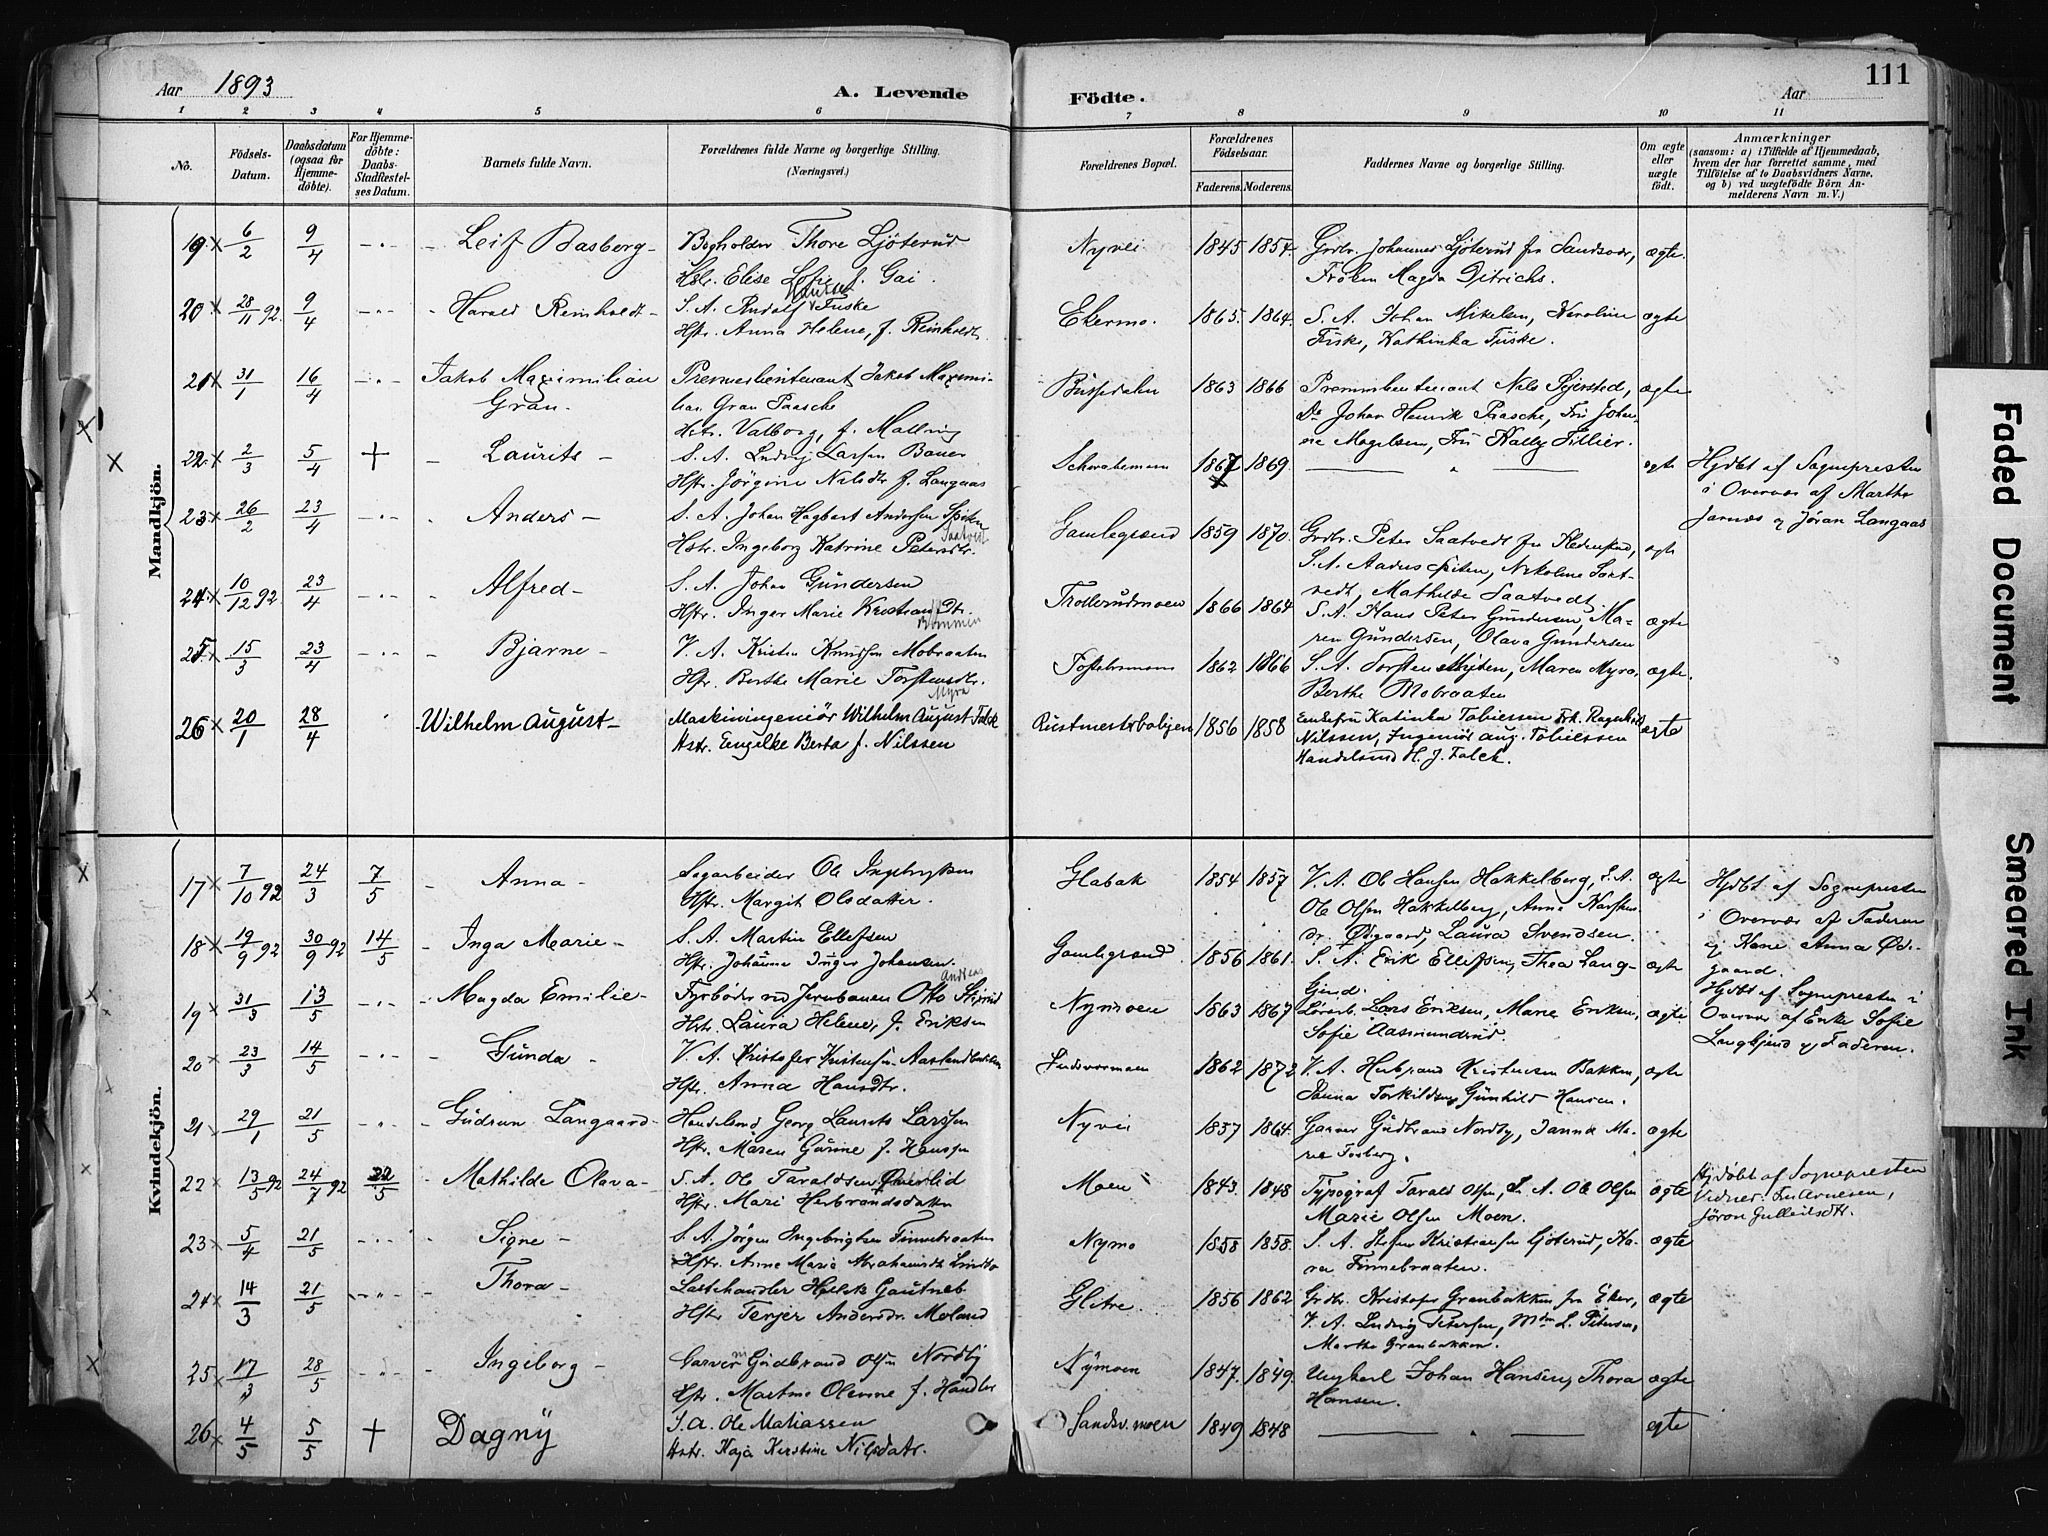 111
Aar 1893
A. Levende
Födte.
Aar
1 2 3 4 5 6 7 8 9 10 11
No.
Födsels-
Datum.
Daabsdatum
(ogsaa for
Hjemme-
döbte).
For Hjemme-
döbte:
Daabs-
Stadfæstel-
ses Datum.
Barnets fulde Navn.
Forældrenes fulde Navne og borgerlige Stilling.
(Næringsvei.)
Forældrenes Bopæl.
Forældrenes
Födselsaar.
Faderens. Moderens.
Faddernes Navne og borgerlige Stilling.
Om ægte
eller
uægte
födt.
Anmærkninger
(saasom: a) i Tilfælde af Hjemmedaab,
hvem der har forrettet samme, med
Tilföielse af to Daabsvidners Navne,
og b) ved uægtefödte Börn An-
melderens Navn m. V.)
Mandkjön.
19 6/2 9/4 Leif Basberg
Bogholder Thore Ljöterud
Hstr. Elise Sofie f. Gai.
Nyvei 1845 1854.
Grdbr. Johannes Ljöterud fra Sandsvær,
Fröken Magda Ditrichs.
ægte.
20 28/11 92. 9/4 Harald Reinholdt
S. A. Rudolf Fuske
Hstr. Anna Helene, f. Reinholdt
Ekermo. 1865. 1864.
S. A. Johan Mikelsen, Karoline
Fiske, Kathinka Fiiske.
ægte
21 31/1 16/4 Jakob Maximilian
Gran.
Premierlieutenant Jakob Maximi-
lian Gran Paasche
Hstr. Valborg, f. Malling
1863 1866
Premierlieutenant Nils Bjersted,
Do Johan Henrik Paasche, Fru Joha-
nne Magelsen, Fru Kally Tillier.
ægte
22. 2/3 5/4 + Laurits
S. A. Ludvig Larsen Bauer
Hstr. Jörgine Nilsdtr f. Langaas
1867 1869.
ægte
Hjdbt af Sognepresten
i Overvær af Marthe
Jarnæs og Jöran Langaas
23 26/2 23/4 Anders
S. A. Johan Hagbart Andersen Spiten
Hstr. Ingeborg Katrine Petersdtr. Saatvedt
Gamlegrænd 1859 1870.
Grdbr. Peter Saatvedt fra
S. A. Anders Spiten, Nikoline Saat-
vedt, Mathilde Saatvedt
ægte
24. 10/12 92. 23/4 Alfred
S. A. Johan Gundersen
Hstr. Inger Marie Kristiansdtr.
Trollerudmoen 1866 1864
S. A. Hans Peter Gundersen, Ma-
ren Gundersen, Olava Gundersen
ægte
25. 15/3 23/4 Bjarne
V. A. Kristen Knudsen Mobraaten
Hstr. Berthe Marie Torstensdtr. Myra
1862 1866
S. A. Torsten Myten, Maren Myra,
Berthe Mobraaten
ægte.
26 20/1 28/4 Wilhelm August
Maskiningeniör Wilhelm August Falck
Hstr. Engelke Berta f. Nilssen
Rustmesterboligen 1856 1858
Enkefru Katinka Tobiessen Frk. Ragnhild
Nilssen, Ingeniör Aug. Tobiessen
Handelsmd H. J. Falck.
ægte
Kvindekjön.
17 7/10 92 24/3 7/5 Anna
Sagarbeider Ole Ingebrigtsen
Hstr. Margit Olsdatter.
Glabak 1854 1857
V. A. Ole Hansen Hakkelberg, S. A.
Ole Olsen Hakkelberg, Anne Karsten-
dr. Ödegaard, Laura Svendsen.
ægte
Hjdbt af Sognepresten
i Overvær af Faderen
og Kone Anna Öde-
gaard.
18 19/9 92 30/9 92 14/5 Inga Marie
S. A. Martin Ellefsen
Hstr. Johanne Inger Johansen.
Gamlegrænd 1856 1861.
S. A. Erik Ellefsen, Thea Lang-
Gjerd.
ægte
Hjdbt af Sognepresten i
Overvær af Enke Sofie
Langkjend og Faderen.
19 31/3 13/5 Magda Emilie
Fyrböder ved Jernbanen Otto Andreas Stiprud
Hstr. Laura Helene, f. Eriksen
Nymoen 1863 1867
Lars Eriksen, Marie Eriksen,
Sofie Aasmundrud.
ægte
20 23/3 14/5 Gunda
V. A. Kristofer Kristensen Aaslandbakken
Hstr. Anna Hansdtr.
1862 1872
V. A. Herbrand Kristensen Bakken,
Janna Torkildsen, Gunhild Hansen.
ægte
21 29/1 21/5 Gudrun Langaard
Handelsmd Georg Laurits Larssen
Hstr. Maren Gurine f. Hansen
Nyvei 1857 1864.
Garver Gudbrand Nordby, Janna Ma-
rie Fosberg.
ægte
22 13/5 92 24/7 92 22/5 Mathilde Olava
S. A. Ole Taraldsen Överlid
Hstr. Mari Herbrandsdatter
Moen 1843. 1848
Typograf Tarald Olsen, S. A. Ole Olsen
Marie Olsen Moen.
ægte
Hjdöbt af Sognepresten
Vidner: Fru Arnesen,
Jöran Gulleiksdtr.
23 5/4 21/5 Signe
S. A. Jörgen Ingebrigtsen Finnebraaten
Hstr. Anne Marie Abrahamsdtr
Nymo 1858 1858.
S. A. Steffen Kristiansen Ljöterud, Ka-
ren Finnebraaten.
ægte
24 14/3 21/5 Thora
Læsthandler Gautneb
Hstr Tenjer Andersdr. Moland
Glitre. 1856 1862
Grdbr. Kristofer Granbakken fra Eker,
V. A. Ludvig Petersen, Mdm L. Petersen,
Marthe Granbakken.
ægte
25 17/3 28/5 Ingeborg
Garver Gudbrand Olsen Nordby
Hstr. Martine Olevine f. Handler
Nymoen 1847. 1849.
Ungkarl Johan Hansen, Thora
Hansen.
ægte
26 4/5 5/5 + Dagny
S. A. Ole Matiassen
Hstr. Kaja Kerstine Nilsdatr.
Sandsv.moen 1849 1848
ægte
Faded Document
Smeared Ink